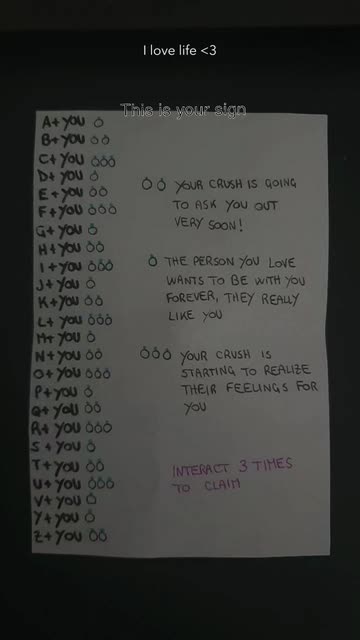 I love life <3
This is your sign
A + YOU
B + YOU
C + YOU
D + YOU
E + YOU
F + YOU
G + YOU
H + YOU
I + YOU
J + YOU
K + YOU
L + YOU
M + YOU
N + YOU
O + YOU
P + YOU
Q + YOU
R + YOU
S + YOU
T + YOU
U + YOU
V + YOU
Y + YOU
Z + YOU
YOUR CRUSH IS GOING
TO ASK YOU OUT
VERY SOON!
THE PERSON YOU LOVE
WANTS TO BE WITH YOU
FOREVER, THEY REALLY
LIKE YOU
YOUR CRUSH IS
STARTING TO REALIZE
THEIR FEELINGS FOR
YOU
INTERACT 3 TIMES
TO CLAIM